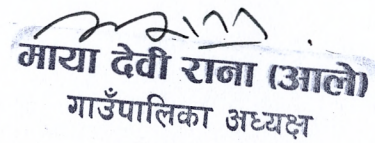 माया देवी राना (आले)
गाउँपालिका अध्यक्ष